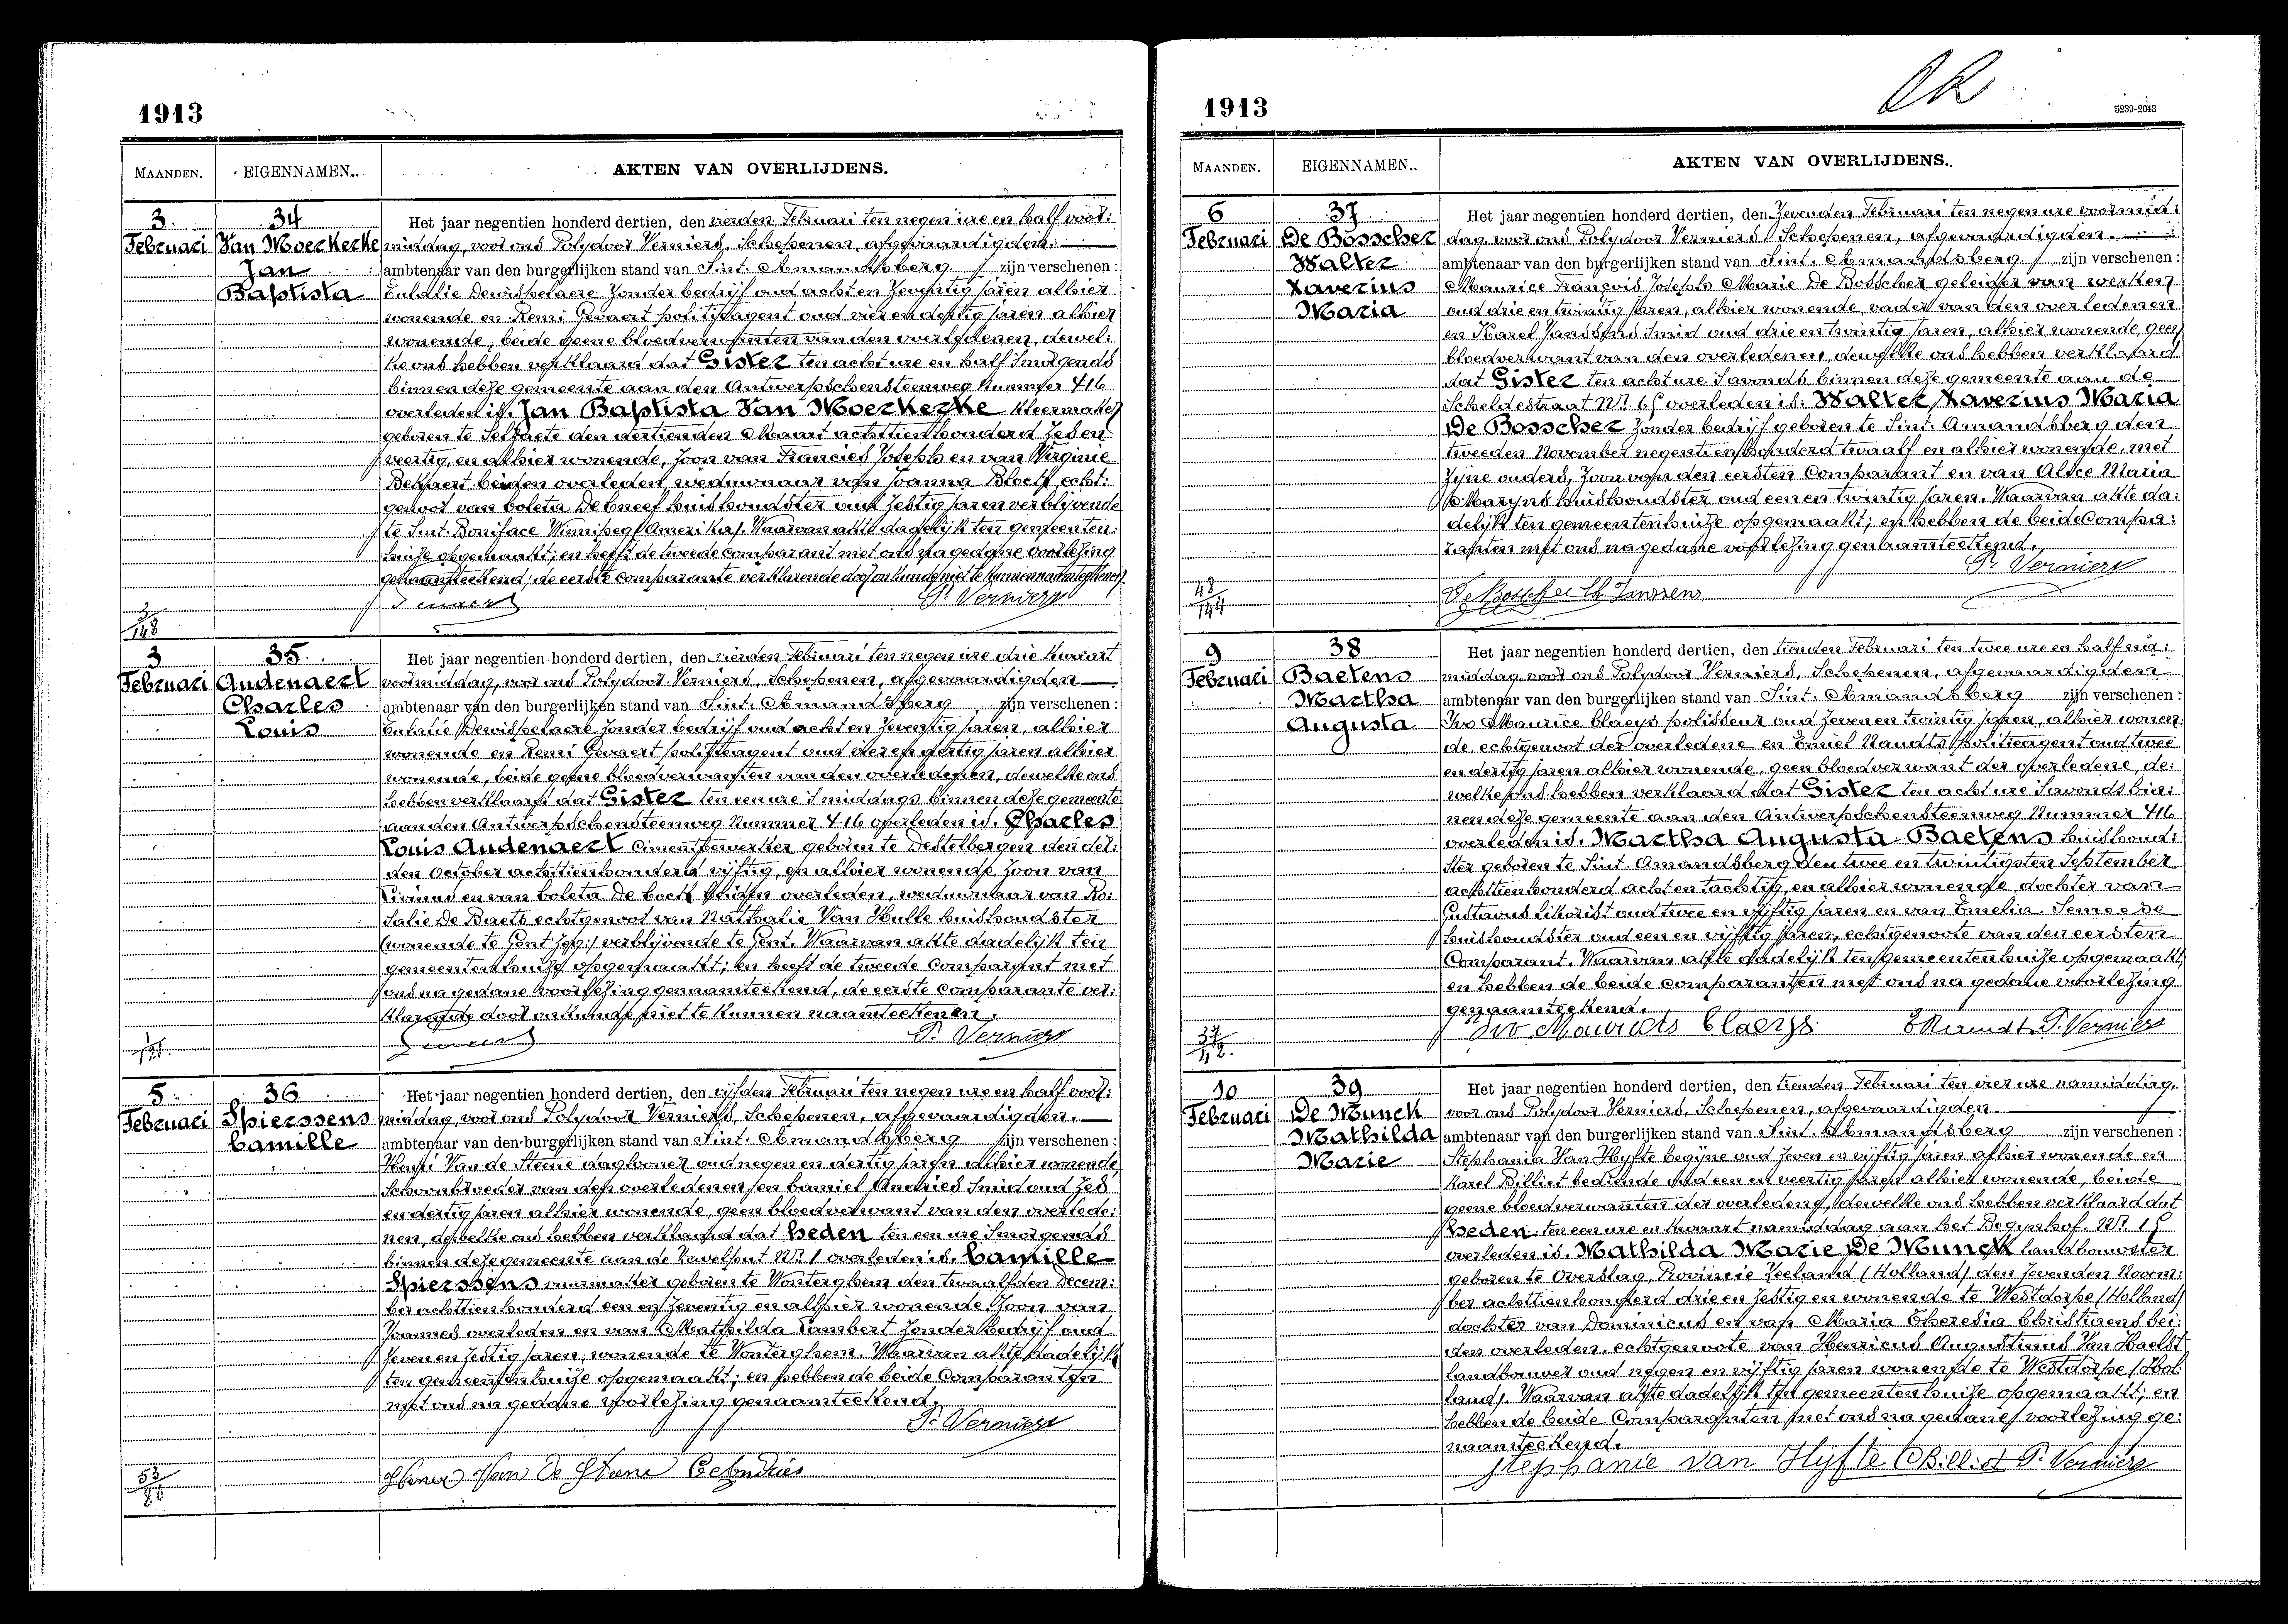 1913
MAANDEN. EIGENNAMEN.. AKTEN VAN OVERLIJDENS.
3. 34 Het jaar negentien honderd dertien, den vierden Februari ten negen ure en half voor:
Februari Van Moerkerke middag, voor ons Polydoor Verniers, Schepenen, afgevaardigden.
Jan ambtenaar van den burgerlijken stand van Sint. Amandsberg zijn verschenen:
Baptista Eulalie Dewispelaere Zonder bedrijf oud acht en Zeventig jaren alhier
wonende en Remi Gevaert politieagent oud vier en dertig jaren alhier
wonende, beide geene bloedverwanten van den overledenen, dewel:
ke ons hebben verklaard dat Gister ten acht ure en half Smorgends
binnen deze gemeente aan den Antwerpschensteenweg Nummer 416
overleden is. Jan Baptista Van Moerkerke Kleermaker
geboren te Selzaete den dertienden Maart achttien honderd Zes en
veertig, en alhier wonende, Zoon van Francies Joseph en van Virginie
beiden overleden, weduwnaar van Joanna echt:
genoot van Coleta De Cneef huishoudster oud Zestig jaren verblijvende
te Sint. Boniface Winnipeg (Amerika). Waarvan akte dadelijk ten gemeenten:
huize opgemaakt; en heeft de tweede Comparant met ons na gedane voorlezing
genaamteekend; de eerste comparante verklarende door onkunde niet te kunnen naamteekenen.
P. Verniers
3/148
3 35. Het jaar negentien honderd dertien, den vierden Februari ten negen ure drie kwaart
Februari Audenaert voormiddag, voor ons Polydoor Verniers, Schepenen, afgevaardigden
Charles ambtenaar van den burgerlijken stand van Sint. Amandsberg zijn verschenen:
Louis Eulalie Dewispelaere Zonder bedrijf oud acht en Zeventig jaren, alhier
wonende en Remi Gevaert politieagent oud vier en dertig jaren alhier
wonende, beide geene bloedverwanten van den overledenen, dewelke ons
hebben verklaard dat Gister ten een ure Smiddags binnen deze gemeente
aan den Antwerpschensteenweg Nummer 416 overleden is. Charles
Louis Audenaert Cimentbewerker geboren te Destelbergen den der:
den October achttien honderd vijftig, en alhier wonende, Zoon van
Livinus en van Coleta De Cock beiden overleden, weduwnaar van Ro:
salie De Baets echtgenoot van Nathalie Van Hulle huishoudster
(wonende te Gent zeg:) verblijvende te Gent. Waarvan akte dadelijk ten
gemeentenhuize opgemaakt; en heeft de tweede Comparant met
ons na gedane voorlezing genaamteekend, de eerste Comparante ver:
klarende door onkunde niet te kunnen naamteekenen.
P. Verniers
5. 36 Het jaar negentien honderd dertien, den vijfden Februari ten negen ure en half voor:
Februari Spierssens middag, voor ons Polydoor Verniers, Schepenen, afgevaardigden.
Camille ambtenaar van den burgerlijken stand van Sint. Amandsberg zijn verschenen:
Henri Van de Steene daglooner oud negen en dertig jaren alhier wonende
Schoonbroeder van den overledenen en Camiel Andries Smid oud Zes
en dertig jaren alhier wonende, geen bloedverwant van den overlede:
nen, dewelke ons hebben verklaard dat heden ten een ure Smorgends
binnen deze gemeente aan de Kavelput Nr. 1 overleden is. Camille
Spierssens geboren te Wonterghem den twaalfden Decem:
ber achttien honderd een en Zeventig en alhier wonende. Zoon van
Joannes overleden en van Mathilda Lambert Zonder bedrijf oud
Zeven en Zestig jaren, wonende te Wonterghem. Waarvan akte dadelijk
ten gemeentenhuize opgemaakt; en hebben de beide Comparanten
met ons na gedane voorlezing genaamteekend.
P. Verniers
Henri Van De Steene C Andries
1913
5239-2043
MAANDEN. EIGENNAMEN.. AKTEN VAN OVERLIJDENS..
6 37 Het jaar negentien honderd dertien, den Zevenden Februari ten negen ure voormid:
Februari De Bosscher dag, voor ons Polydoor Verniers, Schepenen, afgevaardigden.
Walter ambtenaar van den burgerlijken stand van Sint. Amandsberg zijn verschenen:
Xaverius Maurice François Joseph Marie De Bosscher geleider van werken
Maria oud drie en twintig jaren, alhier wonende, vader van den overledenen
en Karel Janssens Smid oud drie en twintig jaren, alhier wonende, geen
bloedverwant van den overledenen, dewelke ons hebben verklaard
dat Gister ten acht ure Savonds binnen deze gemeente aan de
Scheldestraat Nr. 65 overleden is: Walter Xaverius Maria
De Bosscher Zonder bedrijf geboren te Sint. Amandsberg den
tweeden November negentien honderd twaalf en alhier wonende, met
Zijne ouders, Zoon van den eersten Comparant en van Alice Maria
Maryns huishoudster oud een en twintig jaren. Waarvan akte da:
delijk ten gemeentenhuize opgemaakt; en hebben de beide Compa:
ranten met ons na gedane voorlezing genaamteekend.
P. Verniers
48/144
De Bosscher Ch Janssens
9 38 Het jaar negentien honderd dertien, den tienden Februari ten twee ure en half na:
Februari Baetens middag, voor ons Polydoor Verniers, Schepenen, afgevaardigden
Martha ambtenaar van den burgerlijken stand van Sint. Amandsberg zijn verschenen:
Augusta Ivo Maurice Claeys polisseur oud Zeven en twintig jaren, alhier wonen:
de, echtgenoot der overledene en Emiel Naudts politieagent oud twee
en dertig jaren alhier wonende, geen bloedverwant der overledene, de:
welke ons hebben verklaard dat Gister ten acht ure Savonds bin:
nen deze gemeente aan den Antwerpschensteenweg Nummer 416
overleden is. Martha Augusta Baetens huishoud:
ster geboren te Sint. Amandsberg den twee en twintigsten September
achttien honderd acht en tachtig, en alhier wonende, dochter van
Gustavus likorist oud twee en vijftig jaren en van Emelia
huishoudster oud een en vijftig jaren, echtgenoote van den eersten
Comparant. Waarvan akte dadelijk ten gemeentenhuize opgemaakt,
en hebben de beide comparanten met ons na gedane voorlezing
genaamteekend.
Ivo Maurits Claeys E Naudts P. Verniers
10 39 Het jaar negentien honderd dertien, den tienden Februari ten vier ure namiddag,
Februari De Munck voor ons Polydoor Verniers, Schepenen, afgevaardigden.
Mathilda ambtenaar van den burgerlijken stand van Sint. Amandsberg zijn verschenen:
Marie Stephania Van Hyfte begijne oud Zeven en vijftig jaren alhier wonende en
Karel Billiet bediende oud een en veertig jaren alhier wonende, beide
geene bloedverwanten der overledene, dewelke ons hebben verklaard dat
heden ten een ure en kwaart namiddag aan het Begijnhof. Nr. 15
overleden is. Mathilda Marie De Munck landbouwster
geboren te Overslag, Provincie Zeeland (Holland) den Zevenden Novem:
ber achttien honderd drie en Zestig en wonende te Westdorpe (Holland)
dochter van Dominicus en van Maria Theresia Christiaens bei:
den overleden, echtgenoote van Henricus Augustinus Van Haelst
landbouwer oud negen en vijftig jaren wonende te Westdorpe (Hol:
land). Waarvan akte dadelijk ten gemeentenhuize opgemaakt; en
hebben de beide Comparanten met ons na gedane voorlezing ge:
naamteekend.
Stephanie Van Hyfte CBilliet P. Verniers